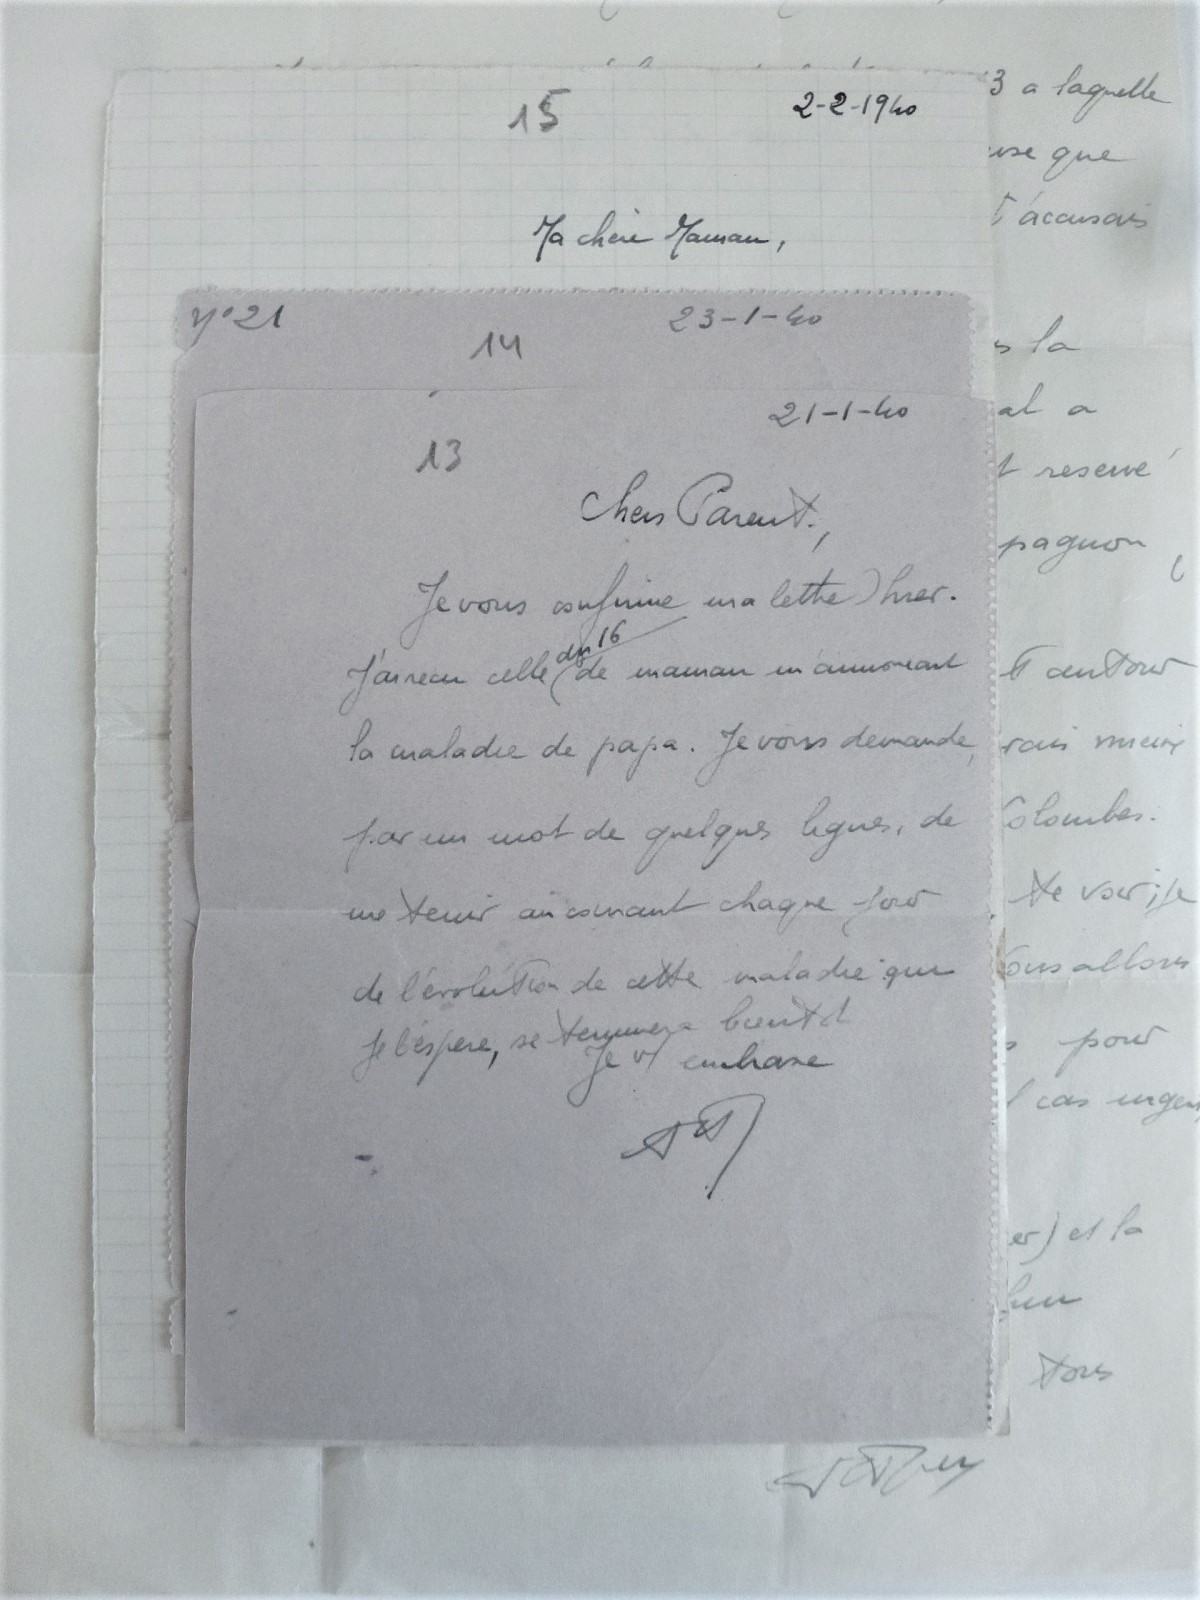 15
2-2-1940
Ma chère Maman,
n°21
23-1-40
14
21-1-40
13
Chers Parents,
Je vous confirme ma lettre d'hier.
J'ai reçu celle (du 16 de maman m'annonçant
la maladie de papa. Je vous demande,
par un mot de quelques lignes, de
me tenir au courant chaque jour
de l'évolution de cette maladie qui
je l'espère, se terminera bientôt
Je vs embrasse
3 a laquelle
use que
t'accusais
s la
al a
t reservé
pagnon
t autour
rais mieux
Colombes.
te voir, je
ous allons
s pour
t cas urgen
er) et la
tous